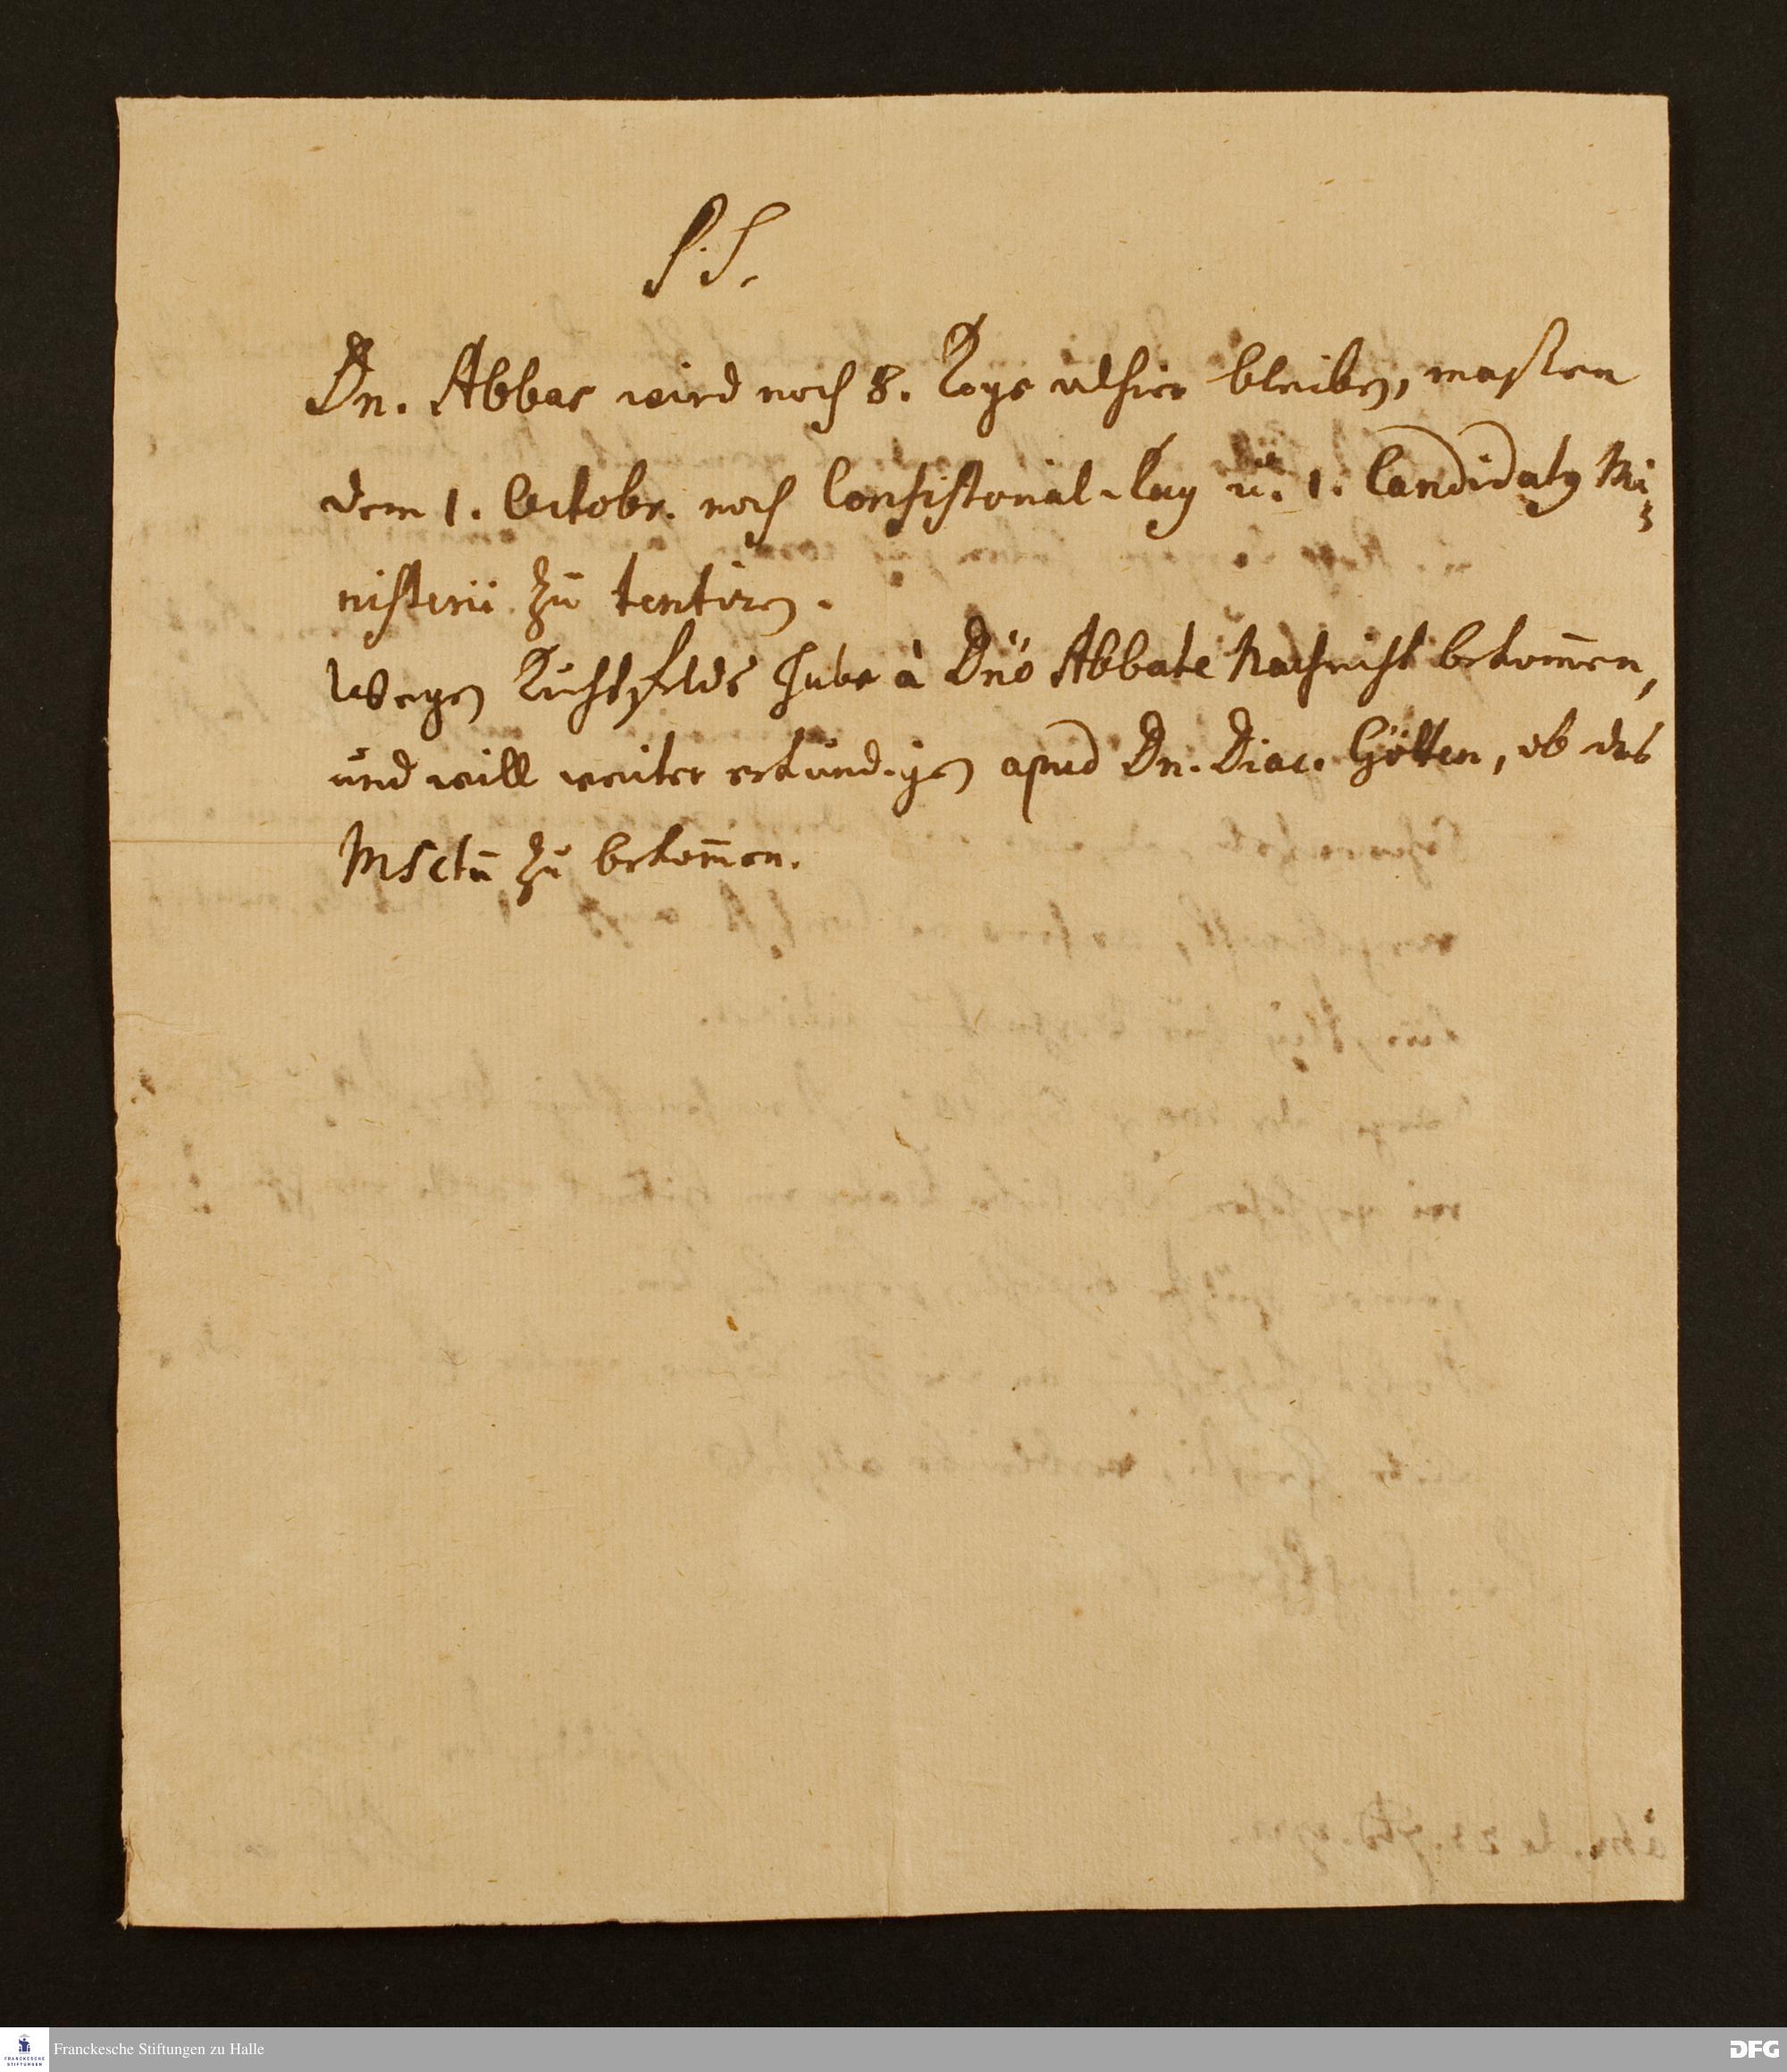 P.S.
Dn. Abbas wird noch 8. Tage alhier bleiben, maßen
dem 1. Octobr. noch Consistorial-Tag u. 1. Candidatus Mi=
nisterii zu tentiren.
Wegen Lichtfelds habe à Dno Abbate Nachricht bekom̅en,
und will weiter erkundigen apud Dn. Diac. Götten, ob das
MSctu̅ zu bekom̅en.
FRANCKESCHE
STIFTUNGEN
Franckesche Stiftungen zu Halle
DFG